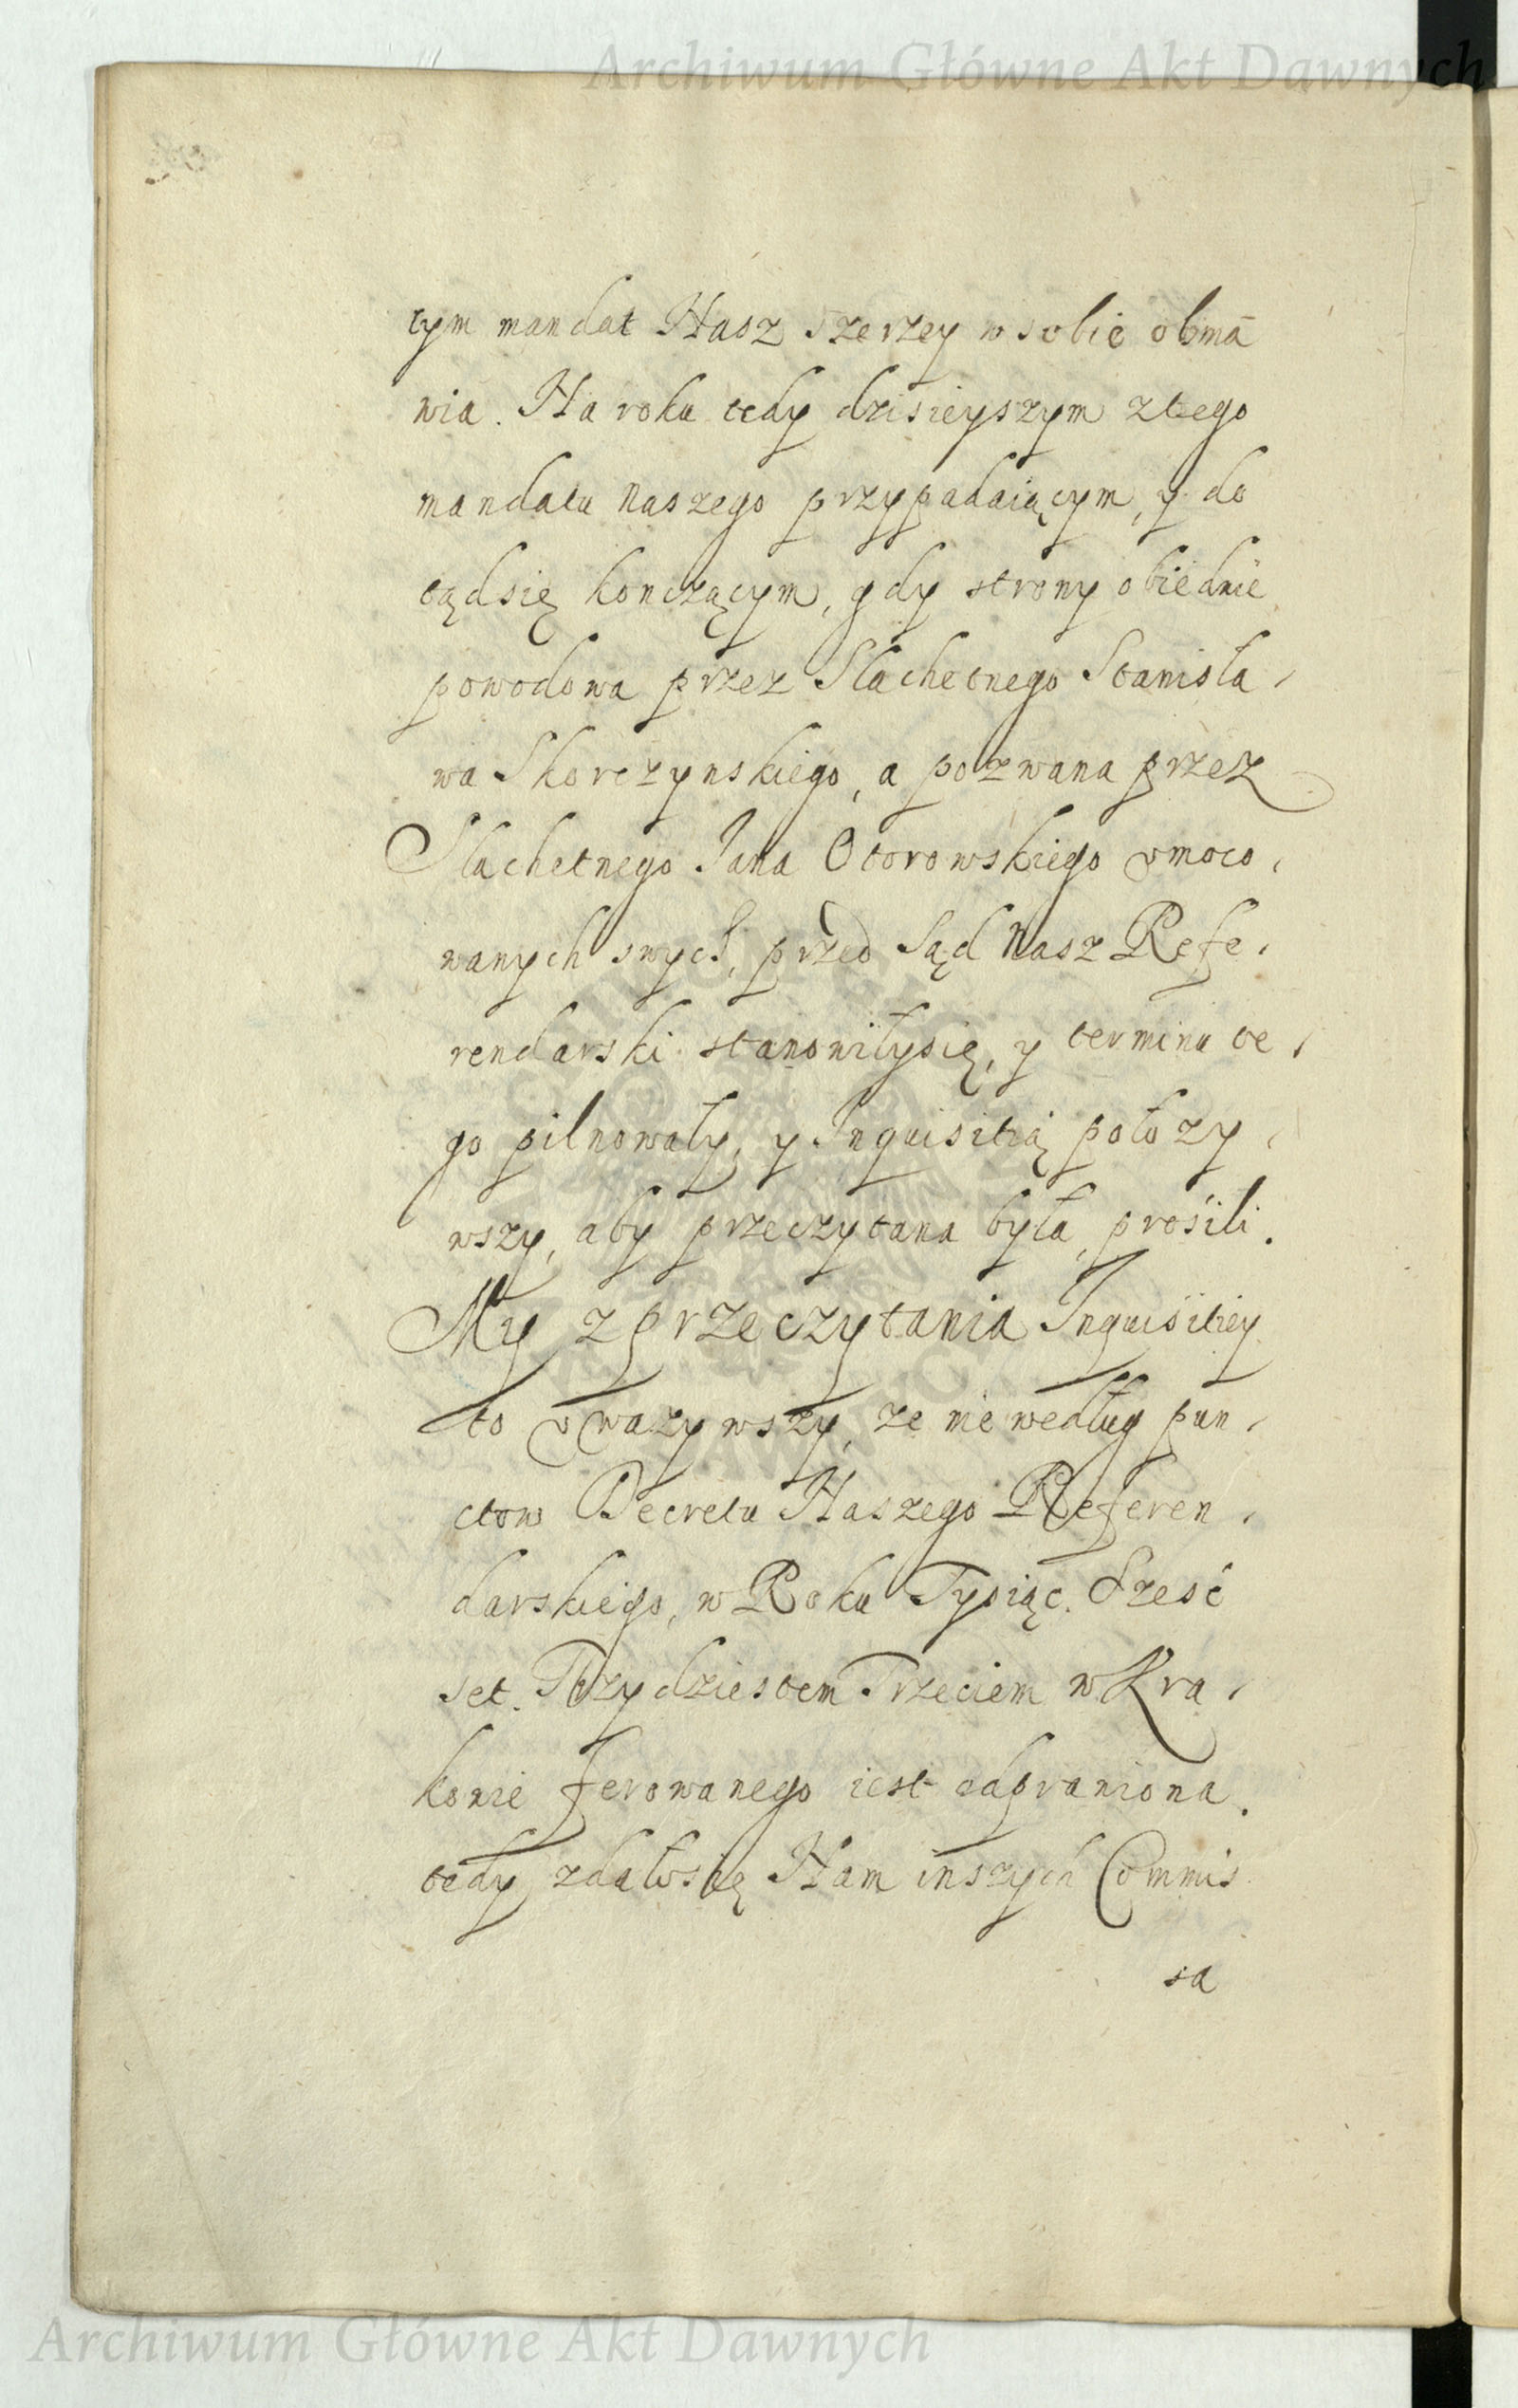 Archiwum Główne Akt Dawnych
tym mandat Nasz szerzey w sobie obmā
wia. Na roku tedy dzisieyszym z tego
mandatu naszego przypadaiącym, y do
tąd się konczącym, gdy strony obiednie
powodowa przez Slachetnego Stanisła,
wa Skorczynskiego, a pozwana przez
Slachetnego Jana Otorowskiego vmoco,
wanych swych, przed Sąd Nasz Refe,
rendarski stanowiły się, y terminu te,
go pilnowały, y Inquisitią położy,
wszy, aby przeczytana była, prosili.
My z przeczytania Inquisitiey
to vwazywszy, ze nie według pun,
ctow Decretu Naszego Referen,
darskiego, w Roku Tysiąc. Sześć
set. Trzydziestem Trzeciem w Kra,
kowie ferowanego iest odprawiona.
tedy zdało się Nam inszych Commis
sa
Archiwum Główne Akt Dawnych